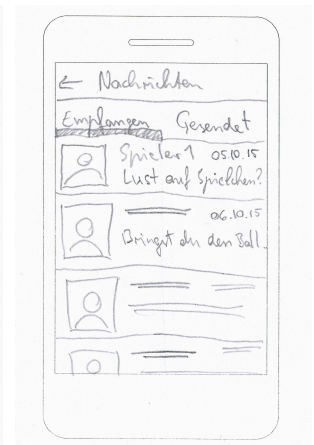 ← Nachrichten
Empfangen Gesendet
Spieler 1 05.10.15
Lust auf Spielchen?
06.10.15
Bringst du den Ball.